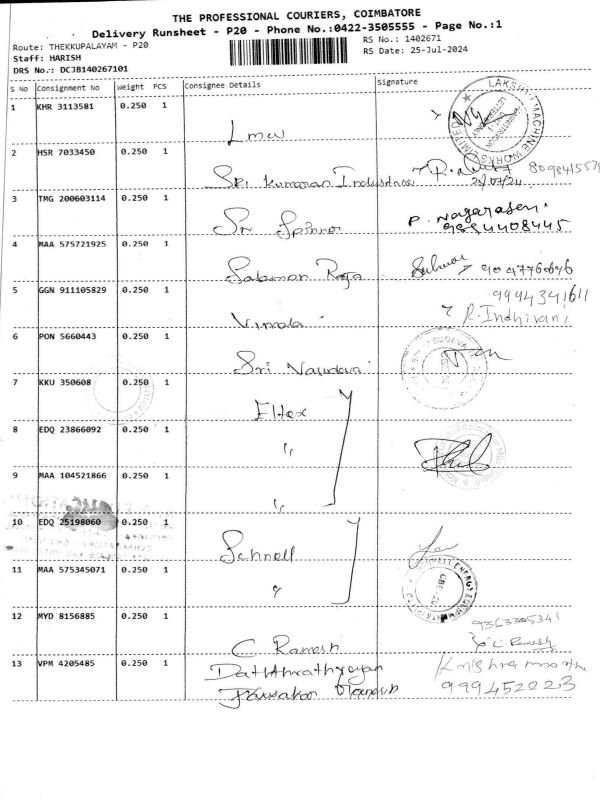 THE PROFESSIONAL COURIERS, COIMBATORE
Delivery Runsheet - P20 - Phone No.:0422-3505555 - Page No.:1
Route: THEKKUPALAYAM - P20
RS No.: 1402671
Staff: HARISH
RS Date: 25-Jul-2024
DRS No.: DCJB140267101
S No Consignment No Weight PCS Consignee Details Signature
1 KHR 3113581 0.250 1
LAKSHMI MACHINE WORKS LIMITED
Lmw
2 HSR 7033450 0.250 1
Sri Kumaran Industries
3 TMG 200603114 0.250 1
Sri Spinner P. Nagarasan
9894408445
4 MAA 575721925 0.250 1
Raja 9047760696
5 GGN 911105829 0.250 1 9994341611
Vimala R. Indhirani
6 PON 5660443 0.250 1
Sri Vasudeva
7 KKU 350608 0.250 1
Eltex
8 EDQ 23866092 0.250 1
"
9 MAA 104521866 0.250 1
"
10 EDQ 25198060 0.250 1
Schnell
11 MAA 575345071 0.250 1
"
12 MYD 8156885 0.250 1
9363305341
C Ramesh C. Ramesh
13 VPM 4205485 0.250 1
Daththathrayan
999452223